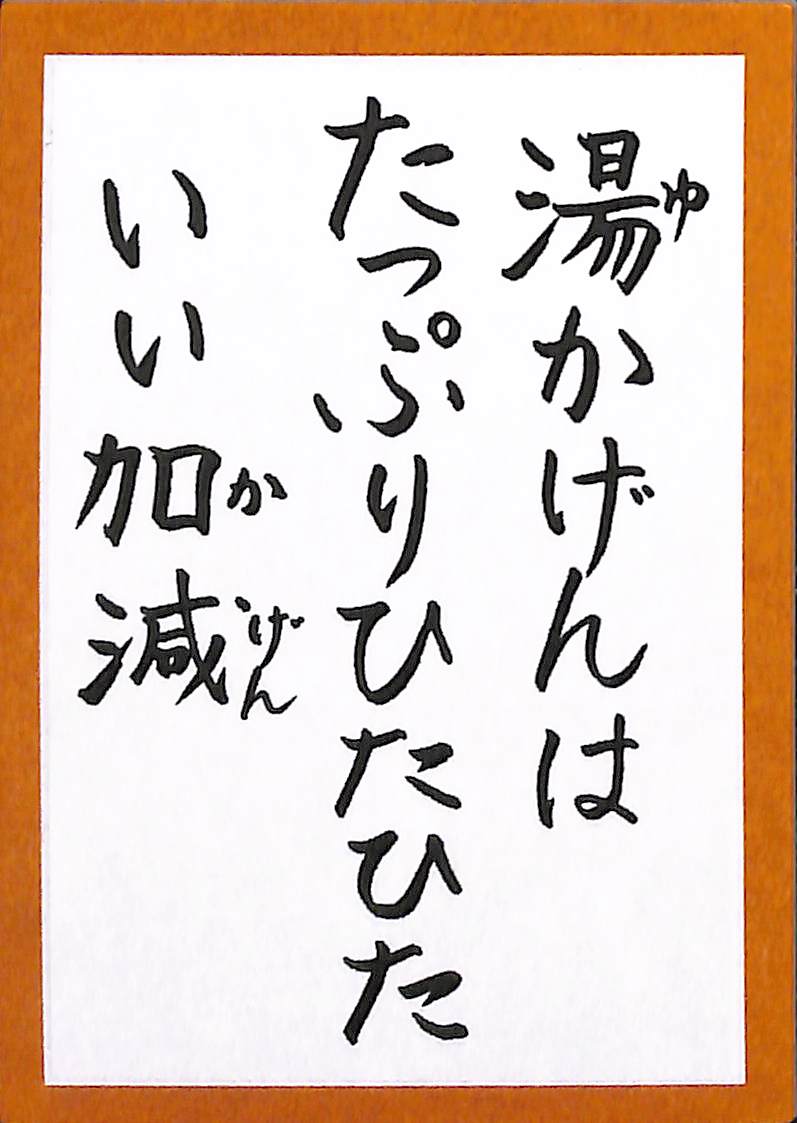 湯かげんは
たっぷりひたひた
いい加減